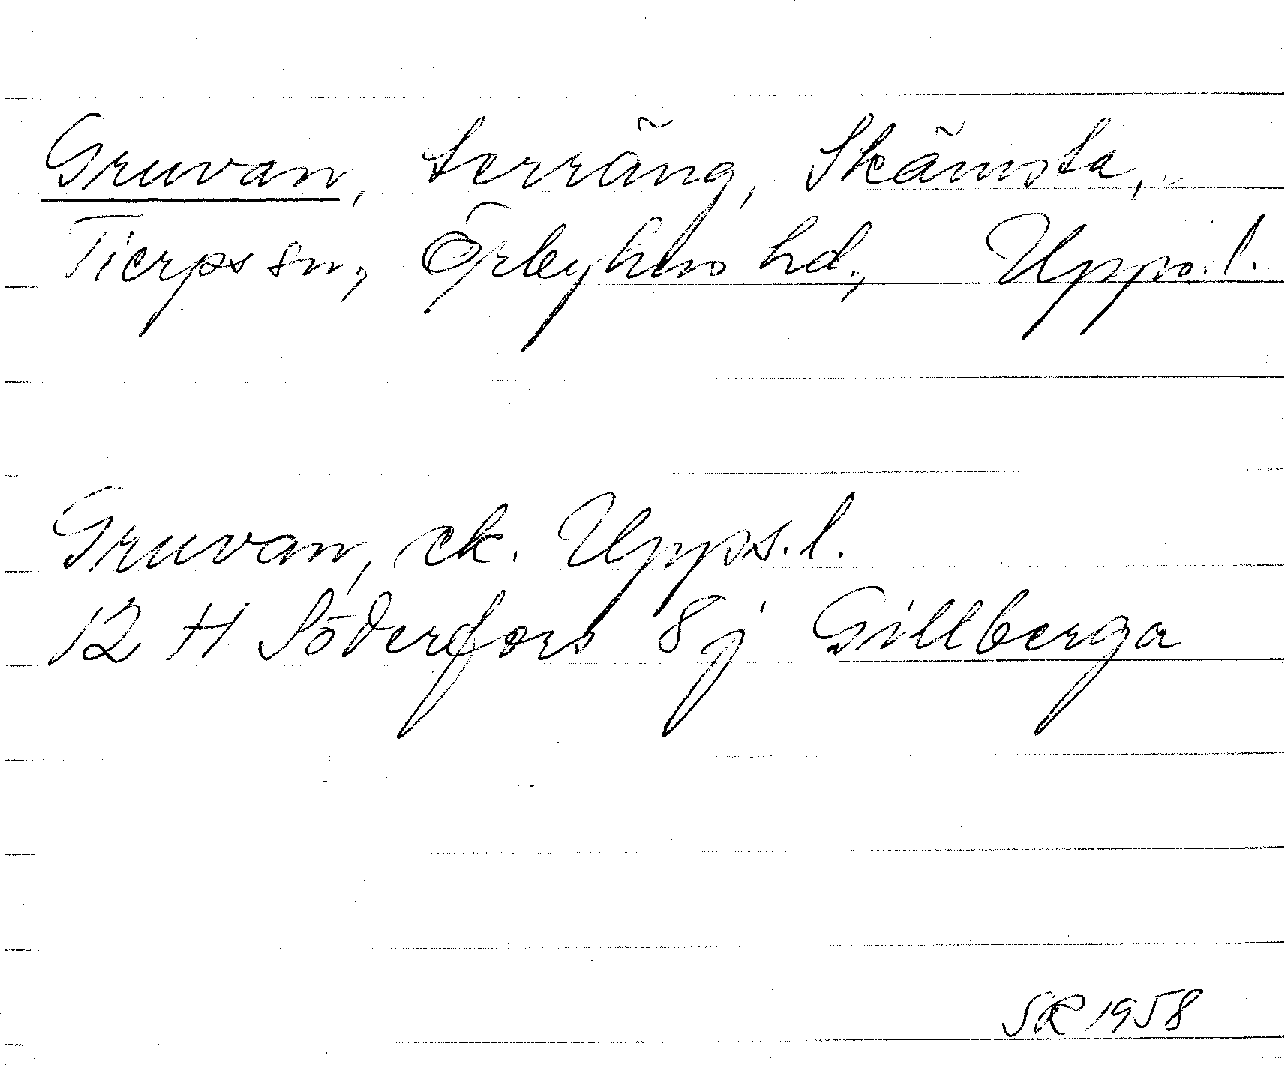 Gruvan, terräng, Skämsta,
Tierps sn, Örbyhus hd, Upps. l.
Gruvan, ek. Upps. l.
12 H Söderfors 8 j Gillberga
SR 1958